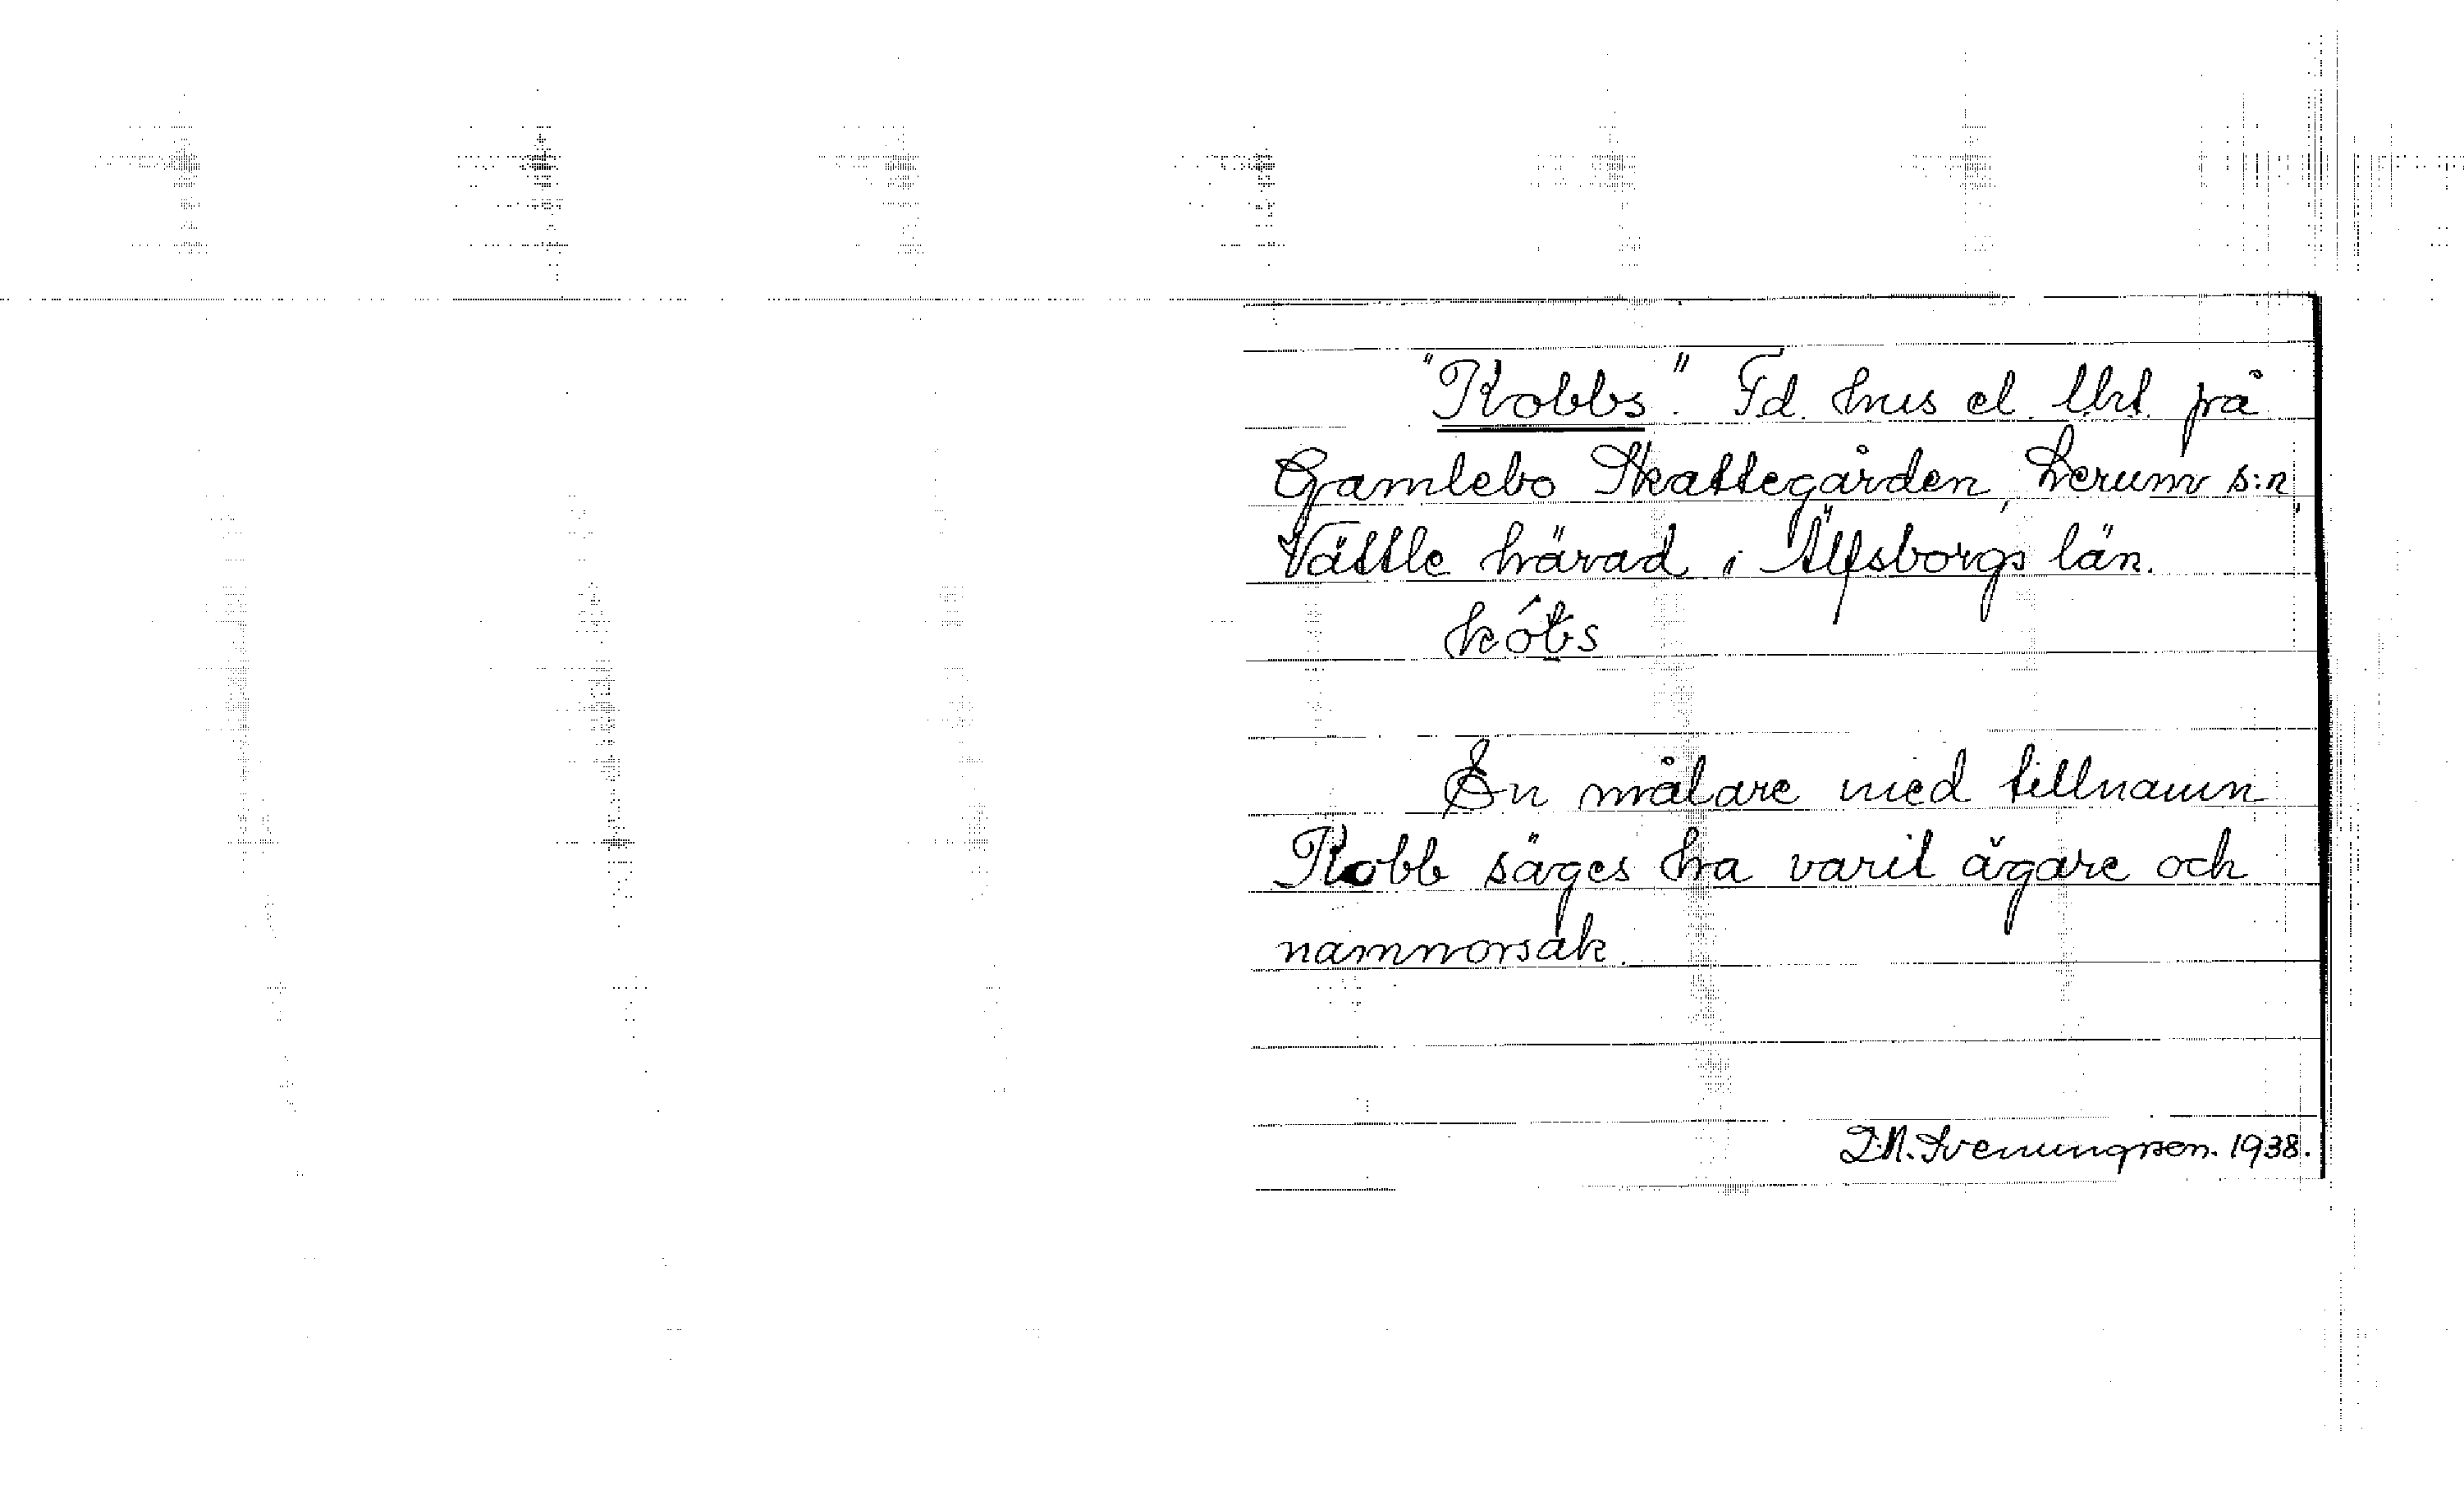 "Kobbs". F.d. hus el. lht. på
Gamlebo Skattegården, Lerums s:n,
Vättle härad i Älfsborgs län.
kóbs
En målare med tillnamn
Kobb säges ha varit ägare och
namnorsak.
D.N. Svenungsson. 1938.